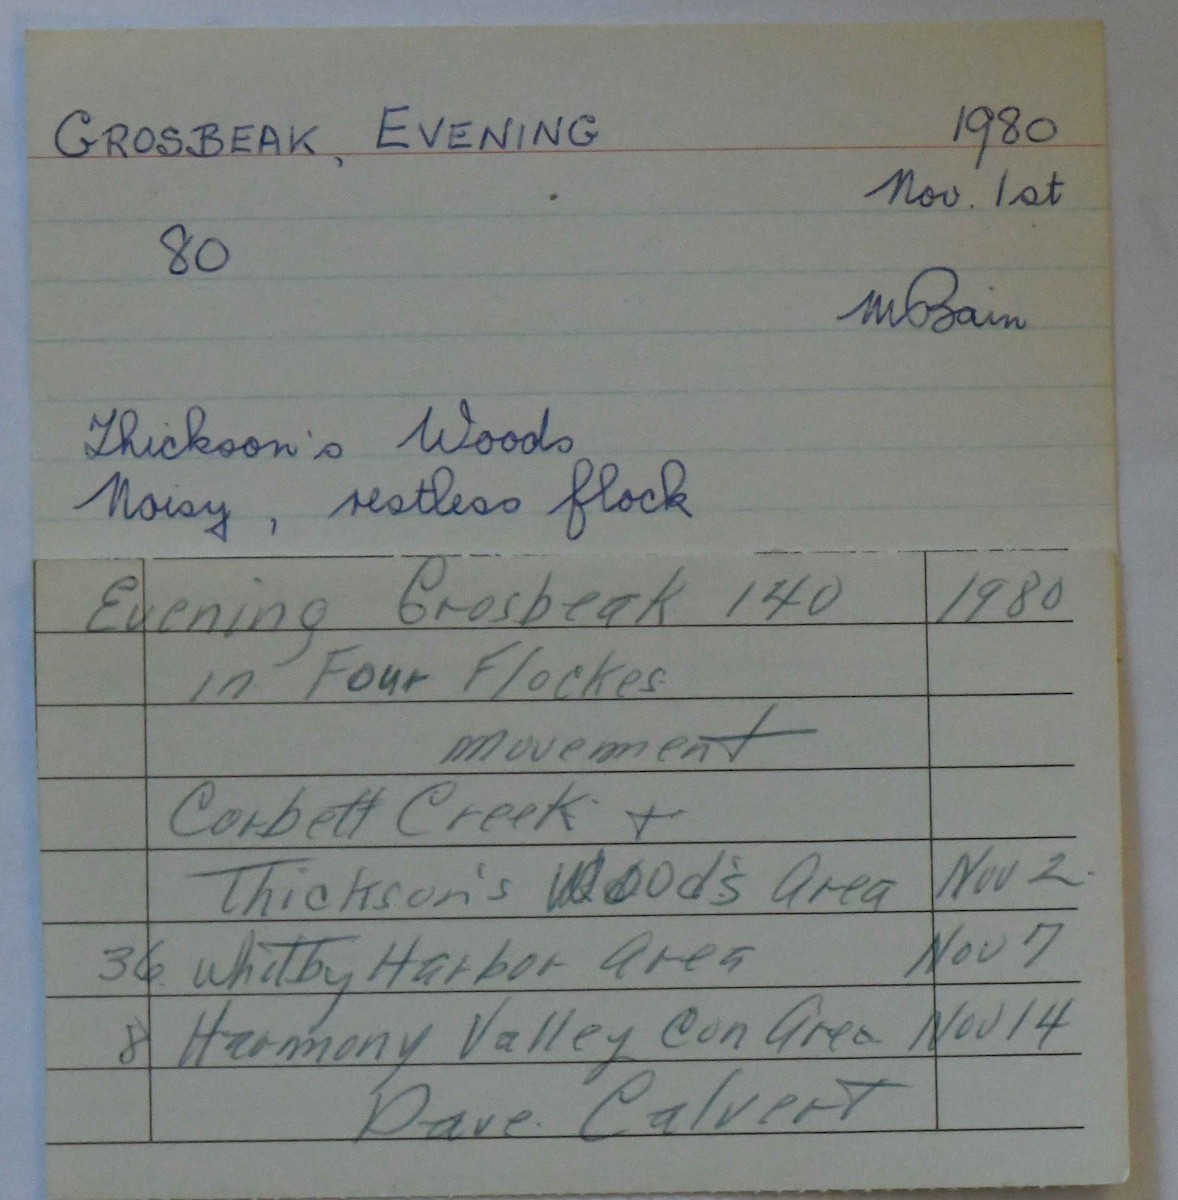 GROSBEAK, EVENING 1980
Nov. 1st
80
MBain
Thickson's Woods
Noisy, restless flock
Evening Grosbeak 140 1980
in Four Flockes
movement
Corbett Creek +
Thickson's Wood's Area Nov 2.
36 Whitby Harbor Area Nov 7
8 Harmony Valley Con Area Nov 14
Dave Calvert